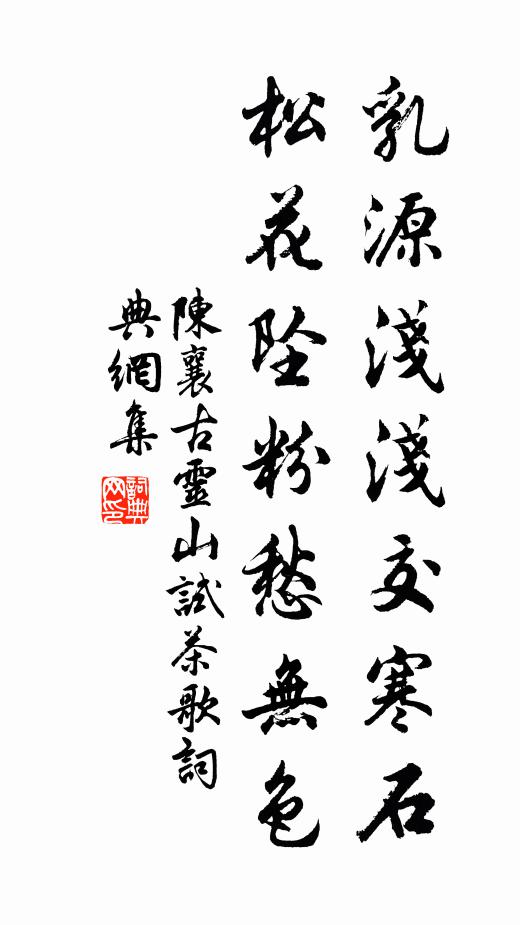 乳源淺淺交寒石
松花坠粉愁無色
陳襄古靈山試茶歌詞
典網集
詞典网印